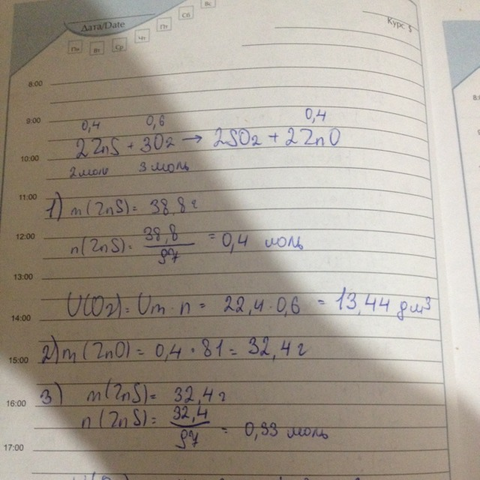 Дата/Date
Курс 5
Пн Вт Ср Чт Пт Сб Вс
8:00
9:00
0,4 0,6 0,4
2ZnS + 3O2 → 2SO2 + 2ZnO
10:00
2 моль 3 моль
11:00
1) m(ZnS) = 38,8 г
12:00
n(ZnS) = 38,8/97 = 0,4 моль
13:00
V(O2) = Vm · n = 22,4 · 0,6 = 13,44 дм3
14:00
2) m(ZnO) = 0,4 · 81 = 32,4 г
15:00
3) m(ZnS) = 32,4 г
16:00
n(ZnS) = 32,4/97 = 0,33 моль
17:00